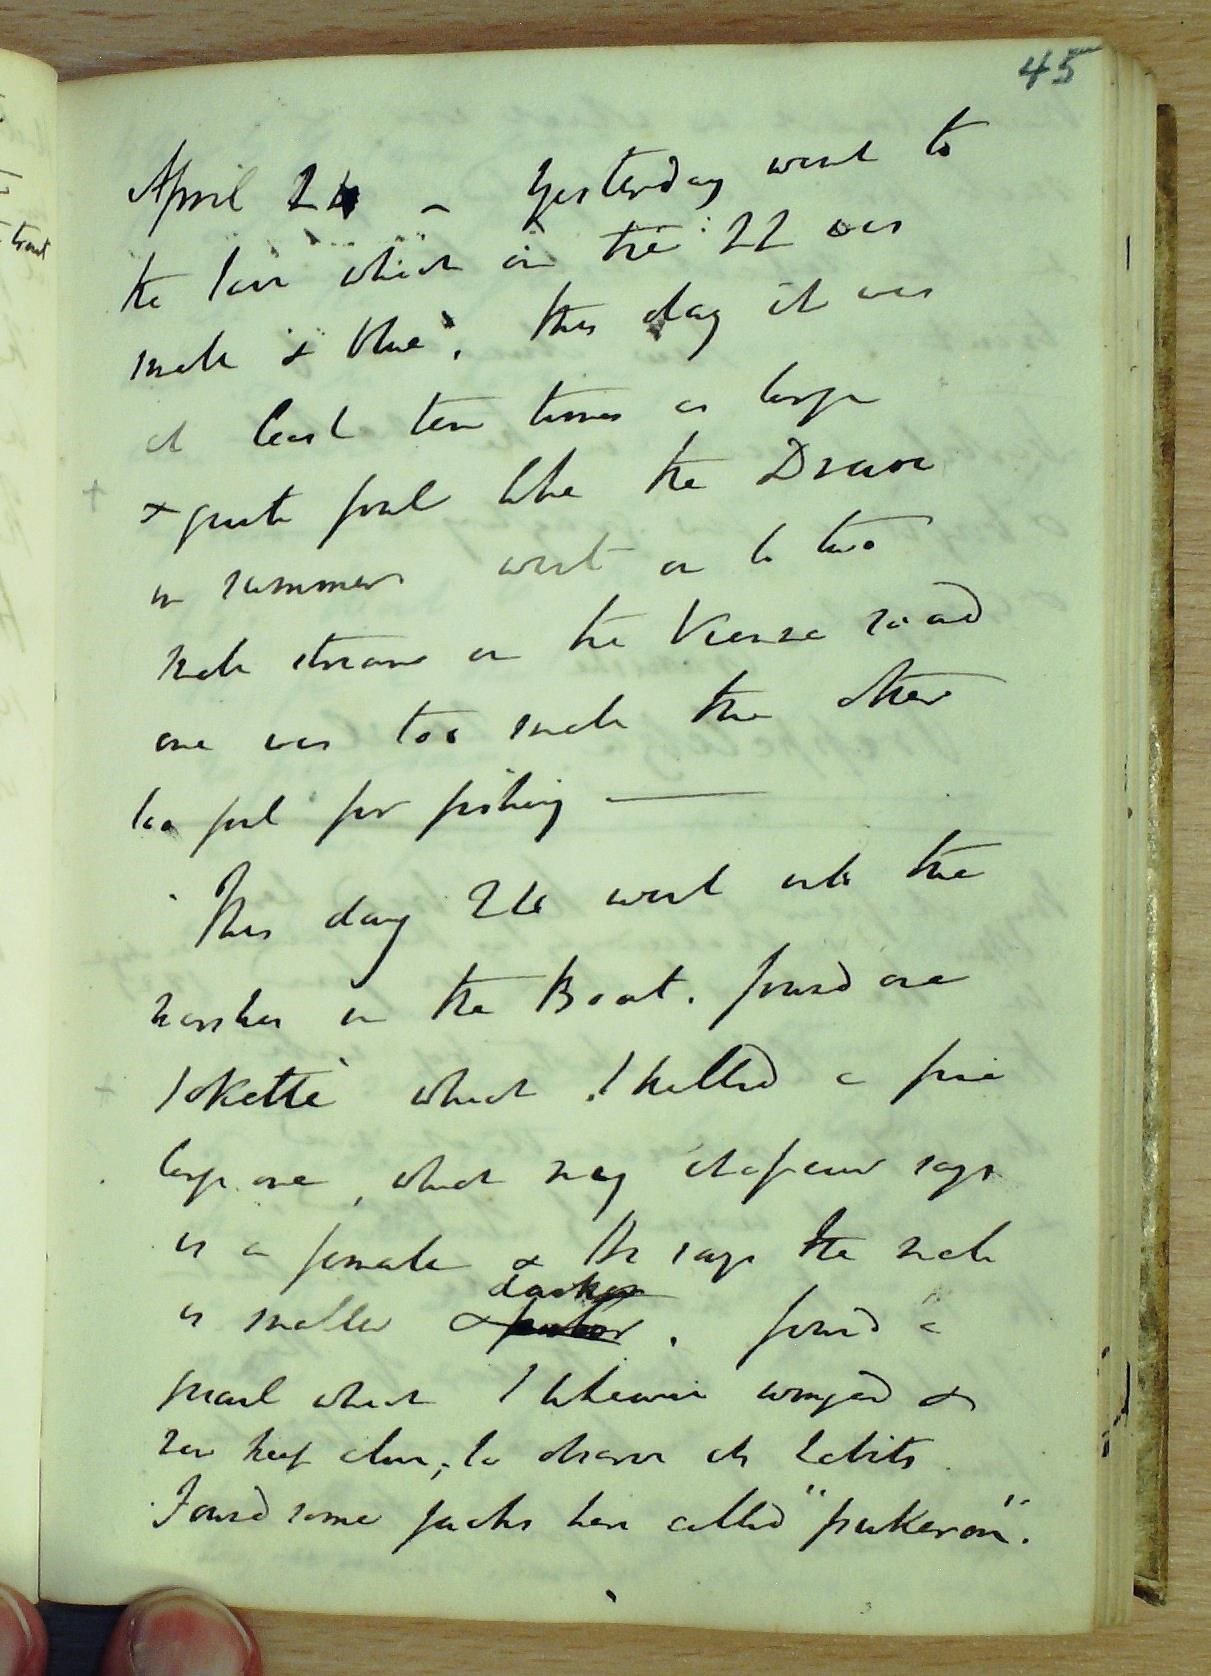 45
April 24 – Yesterday went to
the Save which on the 22 was
small & blue, this day it was
at least ten times as large
+ & quite foul like the Drave
in summer went on to two
little streams on the Vienna road
one was too small the other
too foul for fishing —
This day 24 went into the
marshes in the Boat. found one
+ lokette which I killed a fine
large one, which my chasseur says
is a female & He says the male
is smaller & darker. found a
quail which I likewise winged &
now keep alive; to observe its habits
Found some jacks here called "prukeron".
trout